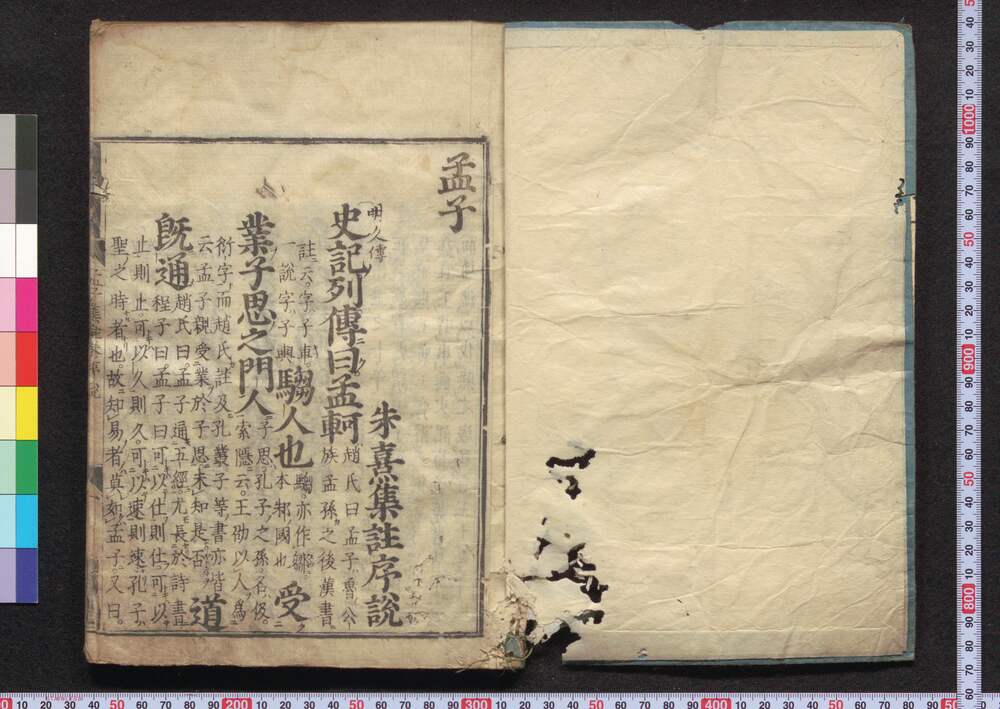 孟子
朱熹集註序說
史記列傳曰孟軻趙氏曰孟子魯公族孟孫之後漢書
註云字子車一說字子輿騶人也騶亦作鄒本邾國也受
業子思之門人子思孔子之孫名伋索隱云王劭以人爲
衍字而趙氏註及孔叢子等書亦皆云孟子親受業於子思未知是否道
旣通趙氏曰孟子通五經尤長於詩書程子曰孟子曰可以仕則仕可以
止則止可以久則久可以速則速孔子
聖之時者也故知易者莫如孟子又曰